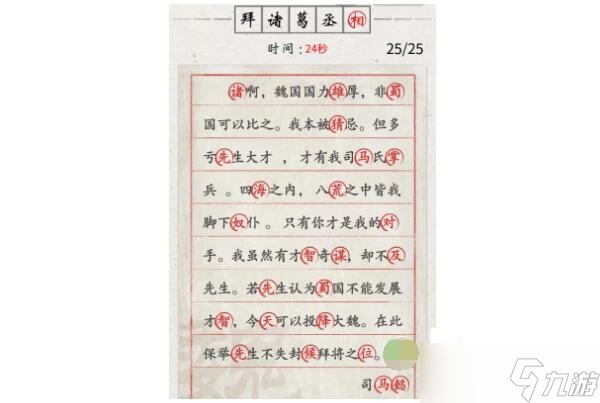 拜诸葛丞相
时间:24秒
25/25
诸啊，魏国国力雄厚，非蜀
国可以比之。我本被猜忌。但多
亏先生大才，才有我司马氏掌
兵。四海之内，八荒之中皆我
脚下奴仆。只有你才是我的对
手。我虽然有才智奇谋，却不及
先生。若先生认为蜀国不能发展
才智，今天可以投降大魏。在此
保举先生不失封候拜将之位。
司马懿
九游